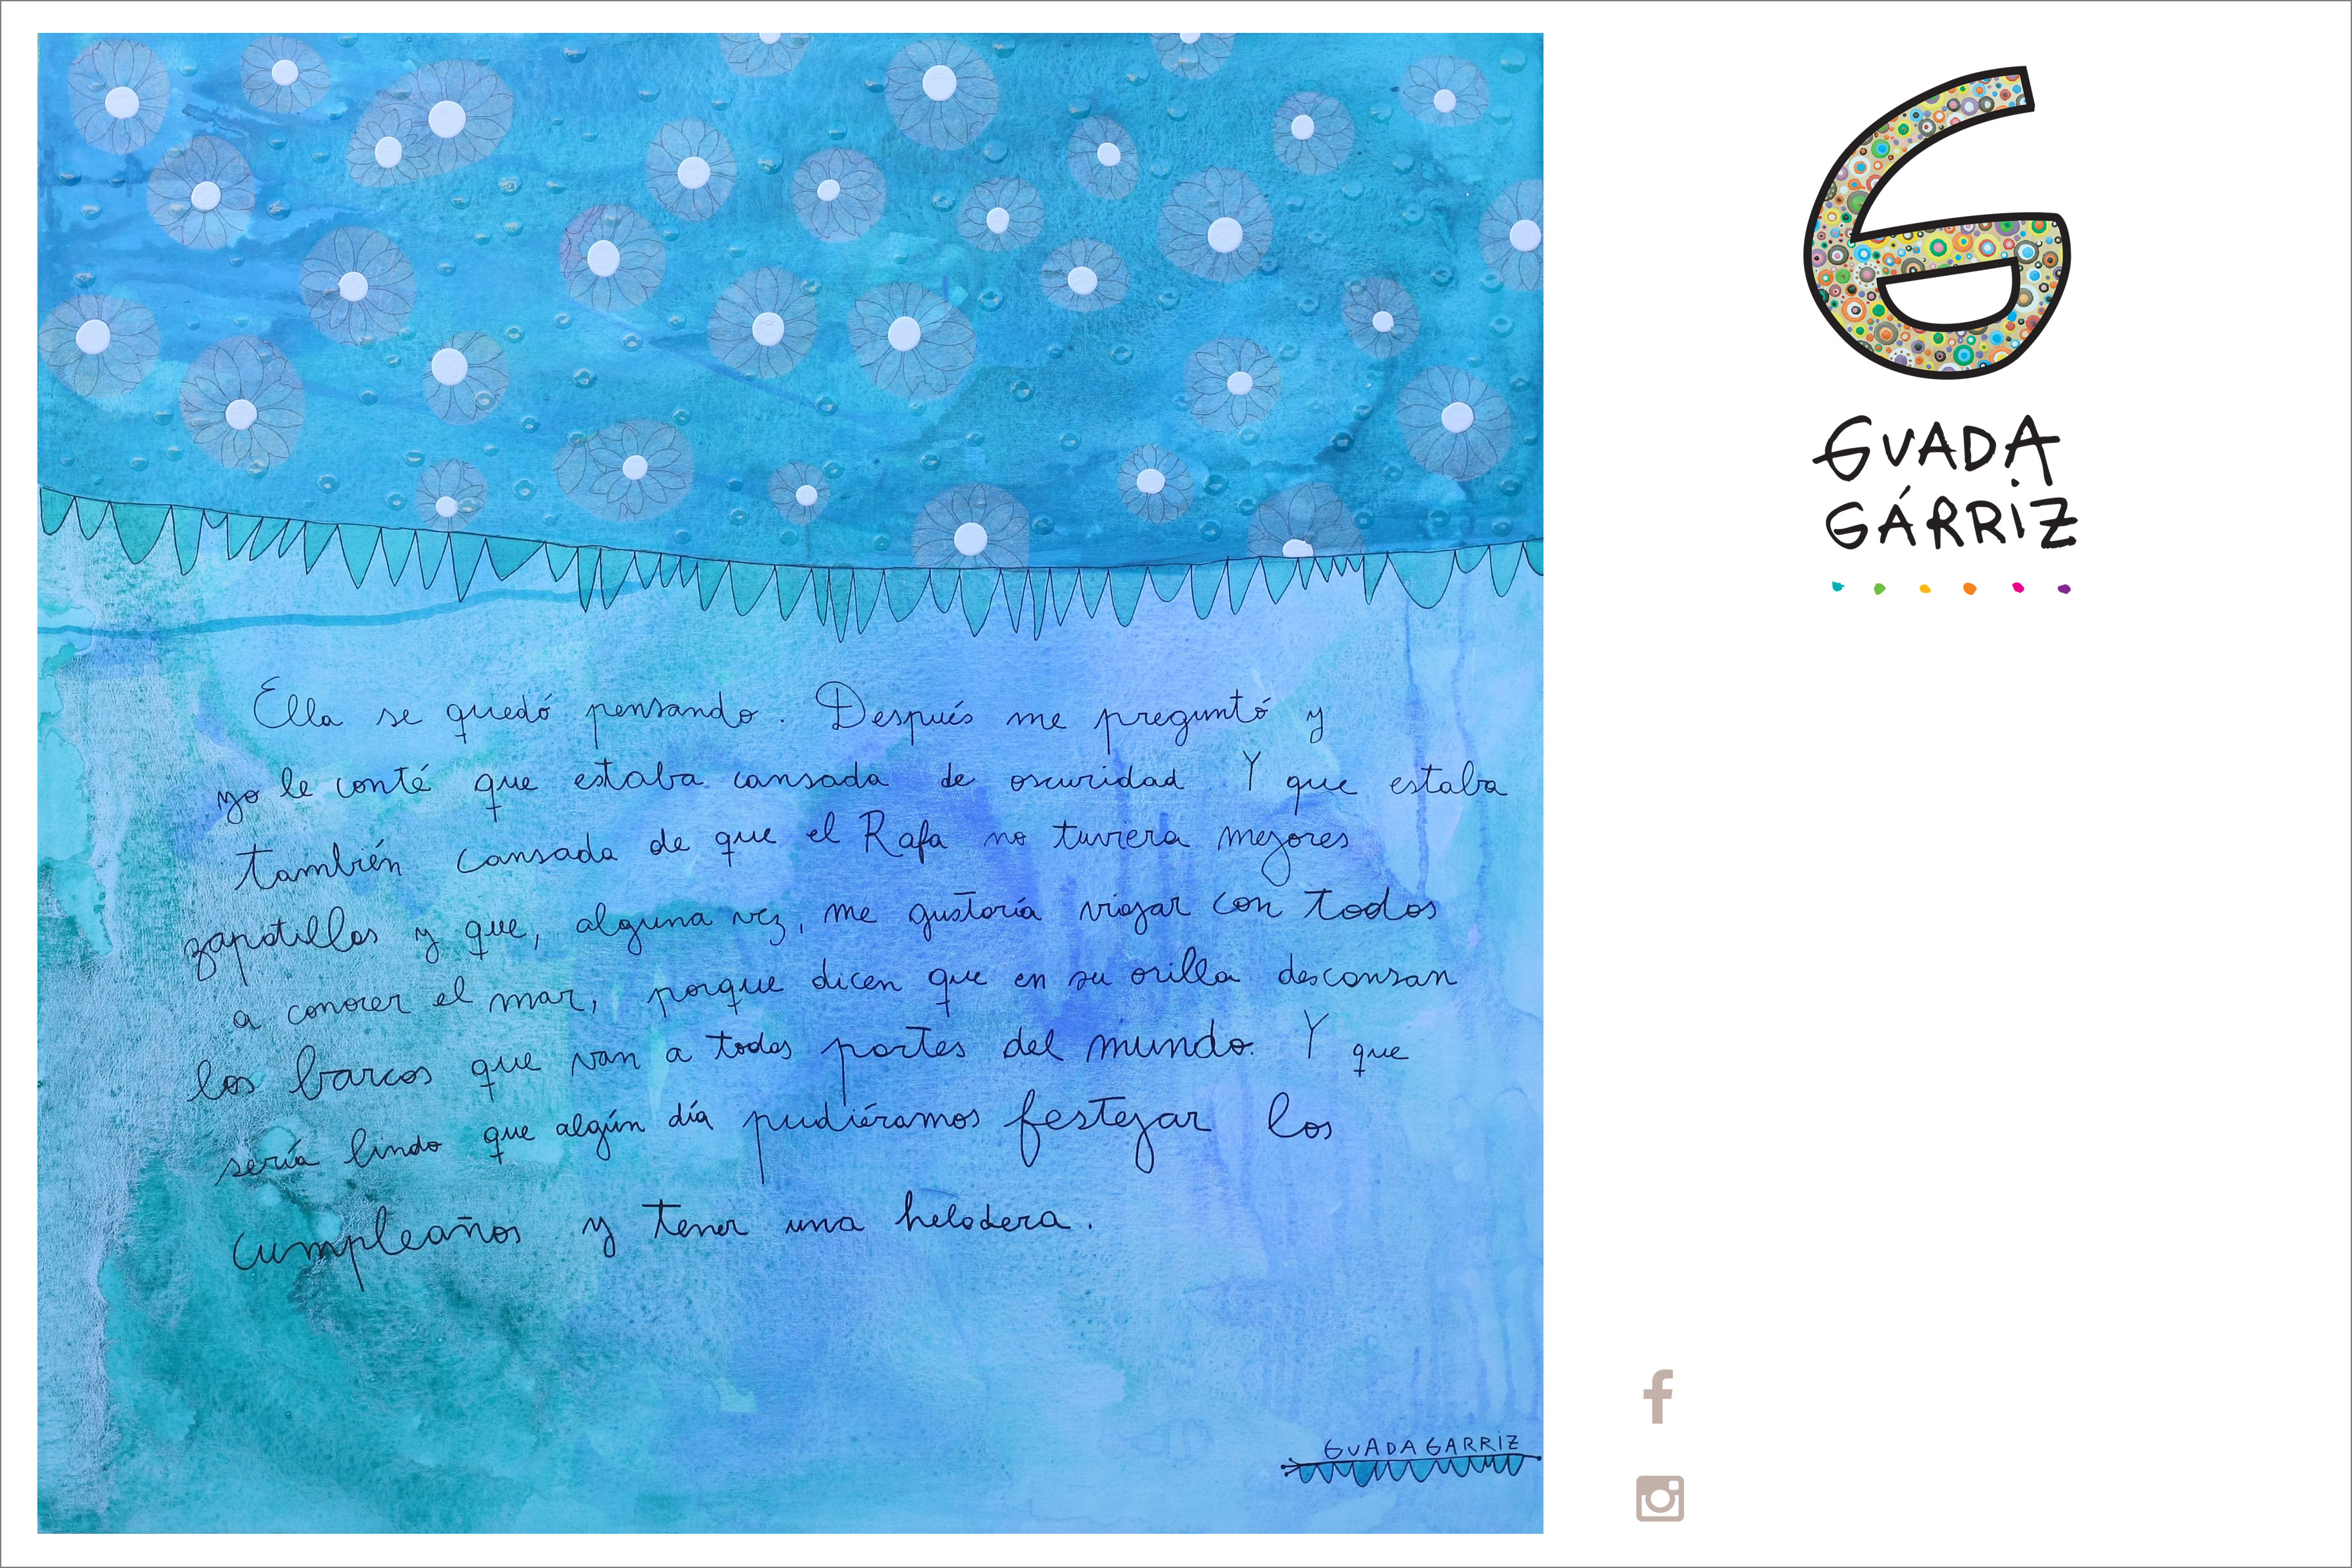 Ella se quedó pensando. Después me preguntó y
yo le conté que estaba cansada de oscuridad. Y que estaba
también cansada de que el Rafa no tuviera mejores
zapatillas y que, alguna vez, me gustaría viajar con todos
a conocer el mar, porque dicen que en su orilla descansan
los barcos que van a todas partes del mundo. Y que
sería lindo que algún día pudiéramos festejar los
cumpleaños y tener una heladera.
GUADA GARRIZ
G
GUADA
GÁRRIZ
f